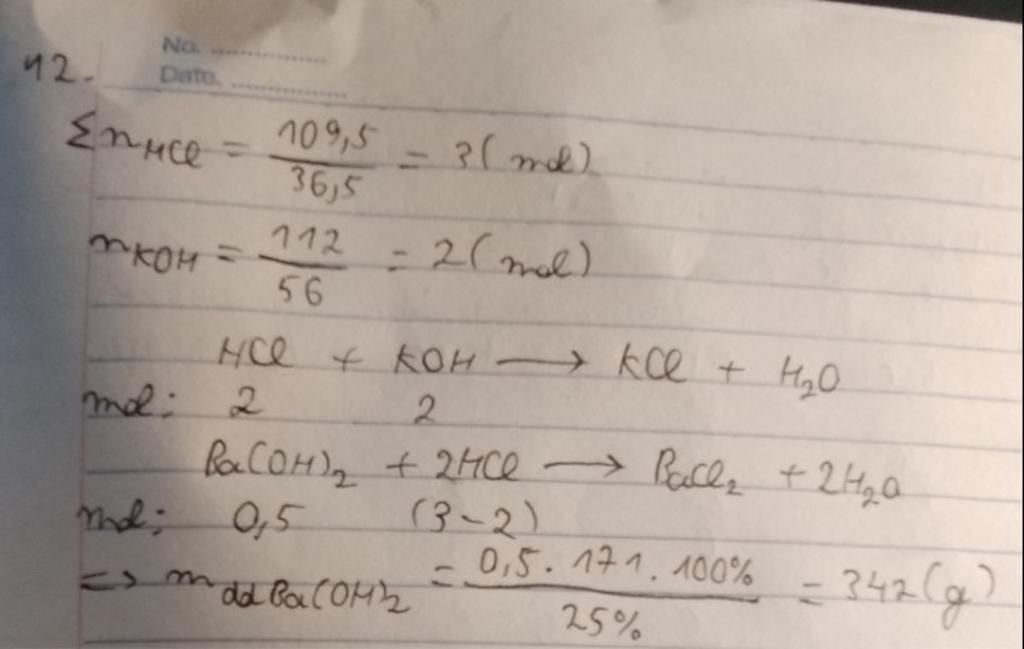 No. ..................
Date. ..................
12.
Σn HCl = 109,5 / 36,5 = 3 (mol)
n KOH = 112 / 56 = 2 (mol)
HCl + KOH → KCl + H₂O
mol: 2 2
Ba(OH)₂ + 2HCl → BaCl₂ + 2H₂O
mol: 0,5 (3-2)
=> m dd Ba(OH)₂ = 0,5 . 171 . 100% / 25% = 342 (g)